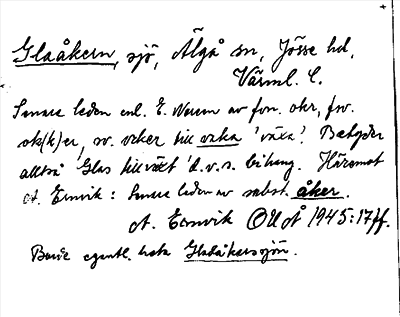 Glaåkern, sjö, Älgå sn, Jösse hd,
Värml. l.
Senare leden enl. E. Noreen av fon. okr, fsv.
ok(k)er, sv. oker till oxka 'växa'. Betyder
alltså Glas tillväxt d.v.s. bihang. Häremot
A. Ernvik: Senare leden av subst. åker.
A. Ernvik OUÅ 1945:17ff.
Borde egentl. heta Glaåkerssjön.